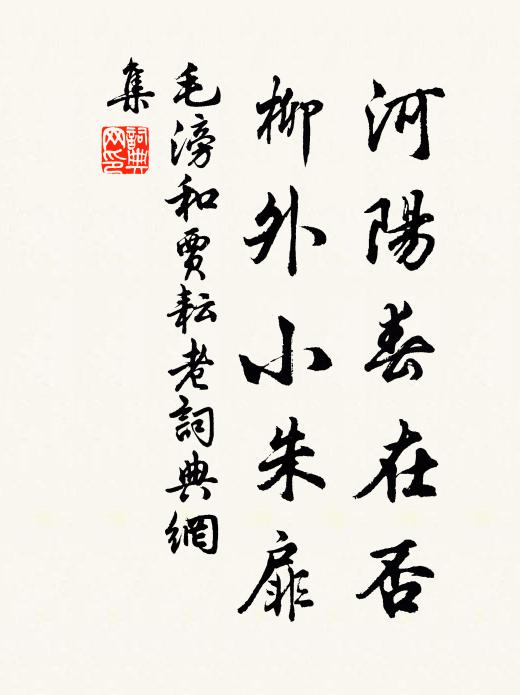 河陽春在否
柳外小朱扉
毛滂和賈耘老詞典網
集
詞典
网印